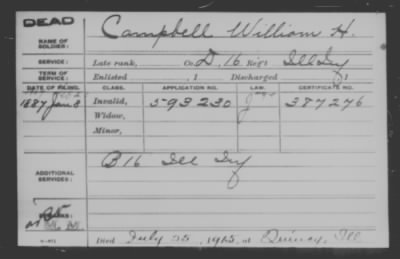 DEAD
NAME OF SOLDIER: Campbell William H.
SERVICE: Late rank, Co. D, 16 Reg't Ill Inf
TERM OF SERVICE: Enlisted , 1 Discharged , 1
DATE OF FILING. CLASS. APPLICATION NO. LAW. CERTIFICATE NO.
1887 Jan 8 Invalid, 593230 387276
Widow,
Minor,
ADDITIONAL SERVICES: B 16 Ill Inf
REMARKS:
Died July 25, 1915, at Quincy, Ill